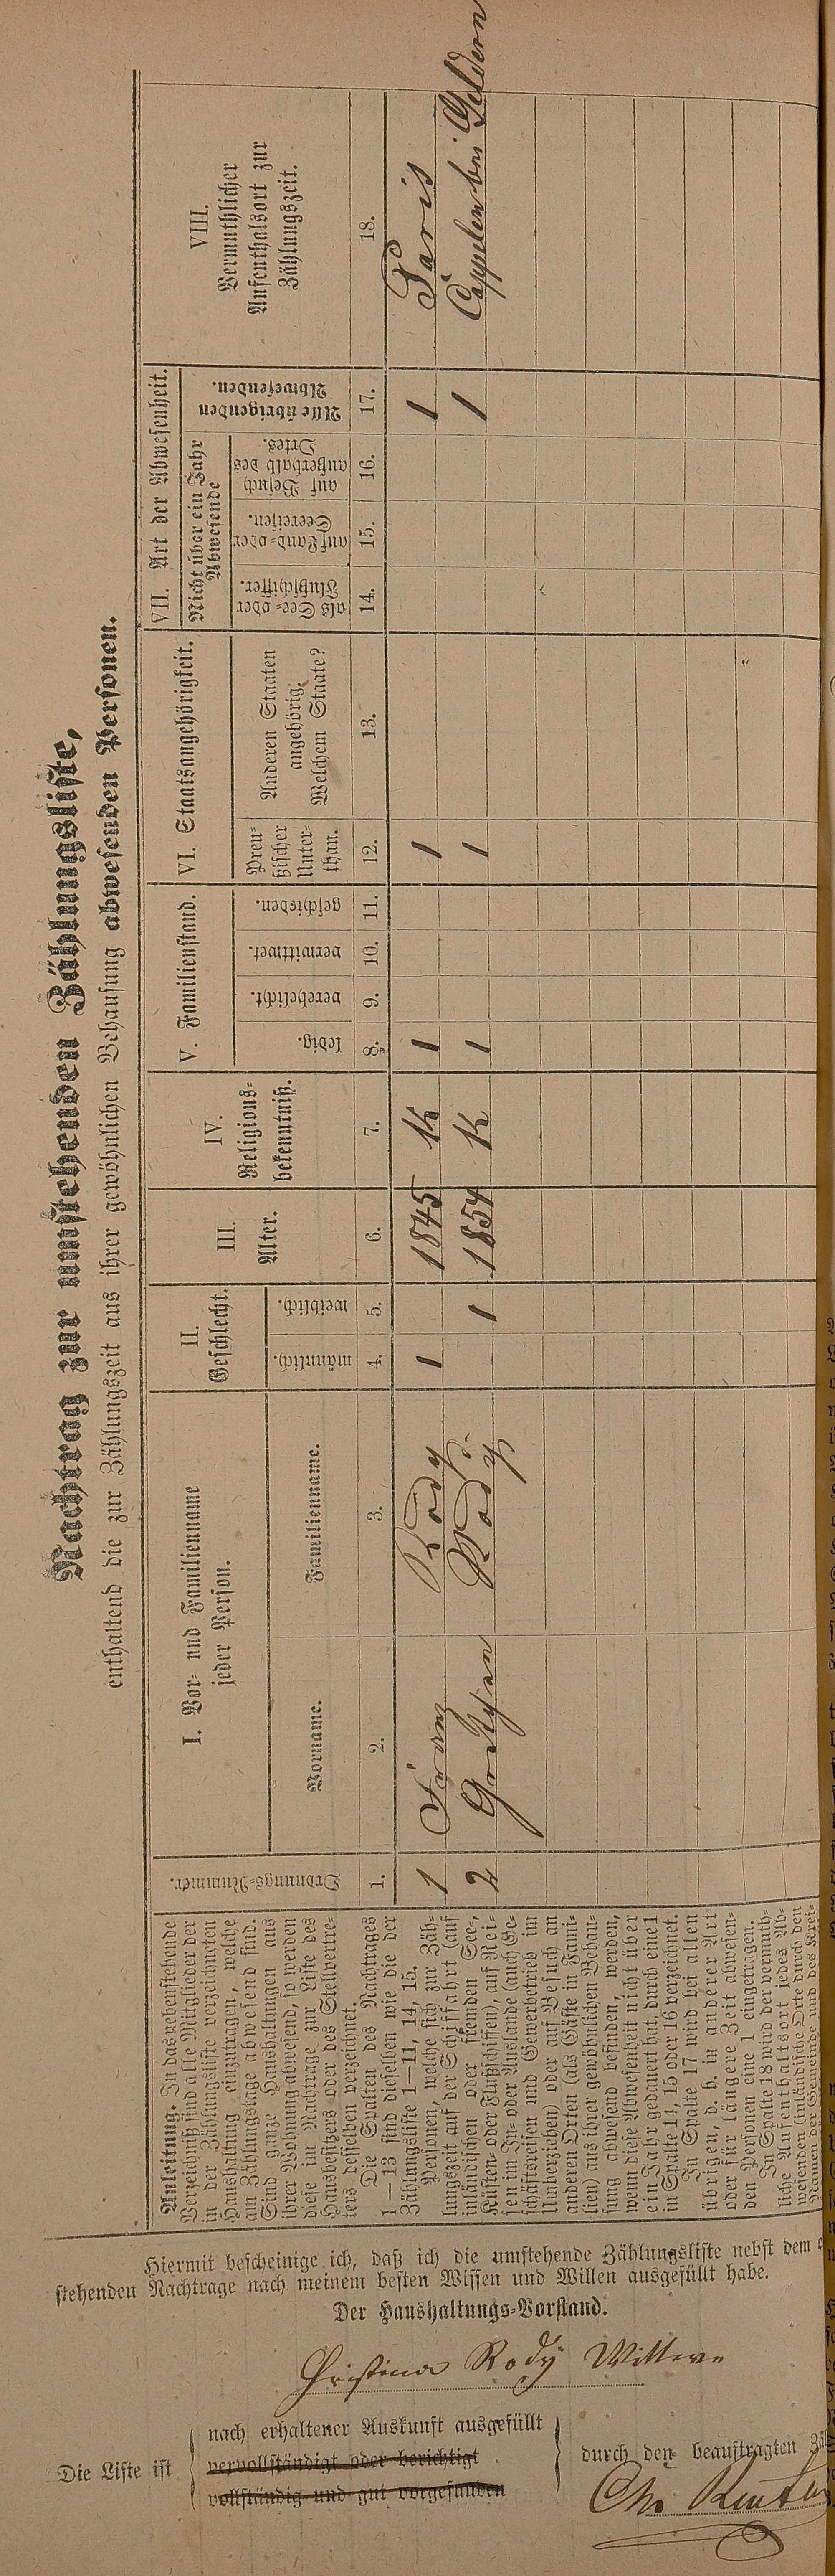 Nachtrag zur umstehenden Zählungsliste,
enthaltend die zur Zählungszeit aus ihrer gewöhnlichen Behausung abwesenden Personen.
Anleitung. In das nebenstehende
Verzeichniß sind alle Mitglieder der
in der Zählungsliste verzeichneten
Haushaltung einzutragen, welche
am Zählungstage abwesend sind.
Sind ganze Haushaltungen aus
ihrer Wohnung abwesend, so werden
diese im Nachtrage zur Liste des
Hausbesitzers oder des Stellvertre-
ters desselben verzeichnet.
Die Spalten des Nachtrages
1–13 sind dieselben wie die der
Zählungsliste 1–11, 14, 15.
Personen, welche sich zur Zäh-
lungszeit auf der Schifffahrt (auf
inländischen oder fremden See-,
Küsten- oder Flußschiffen), auf Rei-
sen im In- oder Auslande (auch Ge-
schäftsreisen und Gewerbebetrieb im
Umherziehen) oder auf Besuch an
anderen Orten (als Gäste in Fami-
lien) aus ihrer gewöhnlichen Behau-
sung abwesend befinden, werden,
wenn diese Abwesenheit nicht über
ein Jahr gedauert hat, durch eine 1
in Spalte 14, 15 oder 16 verzeichnet.
In Spalte 17 wird bei allen
übrigen, d. h. in anderer Art
oder für längere Zeit abwesen-
den Personen eine 1 eingetragen.
In Spalte 18 wird der vermuth-
liche Aufenthaltsort jedes Ab-
wesenden (inländische Orte durch den
Namen der Gemeinde und des Krei-
Ordnungs-Nummer.
I. Vor- und Familienname
jeder Person.
Vorname.
Familienname.
II.
Geschlecht.
männlich.
weiblich.
III.
Alter.
IV.
Religions-
bekenntniß.
V. Familienstand.
ledig.
verehelicht.
verwittwet.
geschieden.
VI. Staatsangehörigkeit.
Preu-
ßischer
Unter-
than.
Anderen Staaten
angehörig.
Welchem Staate?
VII. Art der Abwesenheit.
Nicht über ein Jahr
Abwesende
als See- oder
Flußschiffer.
auf Land- oder
Seereisen.
auf Besuch
außerhalb des
Ortes.
Alle übrigen
Abwesenden.
VIII.
Vermuthlicher
Aufenthalsort zur
Zählungszeit.
1. 2. 3. 4. 5. 6. 7. 8. 9. 10. 11. 12. 13. 14. 15. 16. 17. 18.
1 Franz Rody 1 1845 K 1 1 1 Paris
2 Rody 1 1854 K 1 1 1 Cappelen bei Geldern
Hiermit bescheinige ich, daß ich die umstehende Zählungsliste nebst dem
stehenden Nachtrage nach meinem besten Wissen und Willen ausgefüllt habe.
Der Haushaltungs-Vorstand.
Christina Rody Wittwe
Die Liste ist
nach erhaltener Auskunft ausgefüllt
vervollständigt oder berichtigt
vollständig und gut vorgefunden
durch den beauftragten